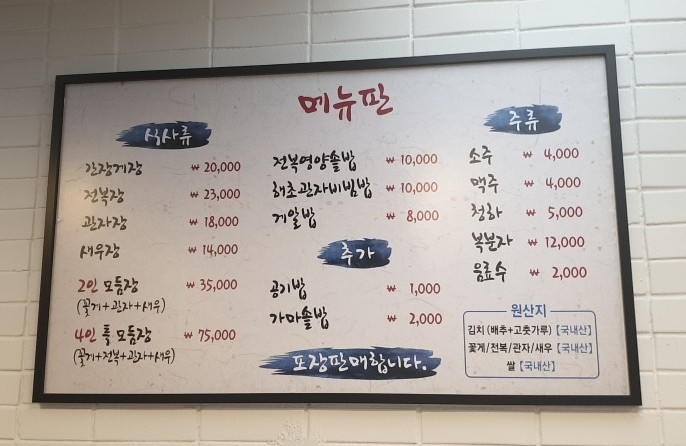 메뉴판
식사류
간장게장 ₩ 20,000
전복장 ₩ 23,000
관자장 ₩ 18,000
새우장 ₩ 14,000
2인 모둠장 ₩ 35,000
(꽃게+관자+새우)
4인 특 모둠장 ₩ 75,000
(꽃게+전복+관자+새우)
전복영양솥밥 ₩ 10,000
해초관자비빔밥 ₩ 10,000
게알밥 ₩ 8,000
추가
공기밥 ₩ 1,000
가마솥밥 ₩ 2,000
포장판매합니다.
주류
소주 ₩ 4,000
맥주 ₩ 4,000
청하 ₩ 5,000
복분자 ₩ 12,000
음료수 ₩ 2,000
원산지
김치 (배추+고춧가루)【국내산】
꽃게/전복/관자/새우【국내산】
쌀【국내산】